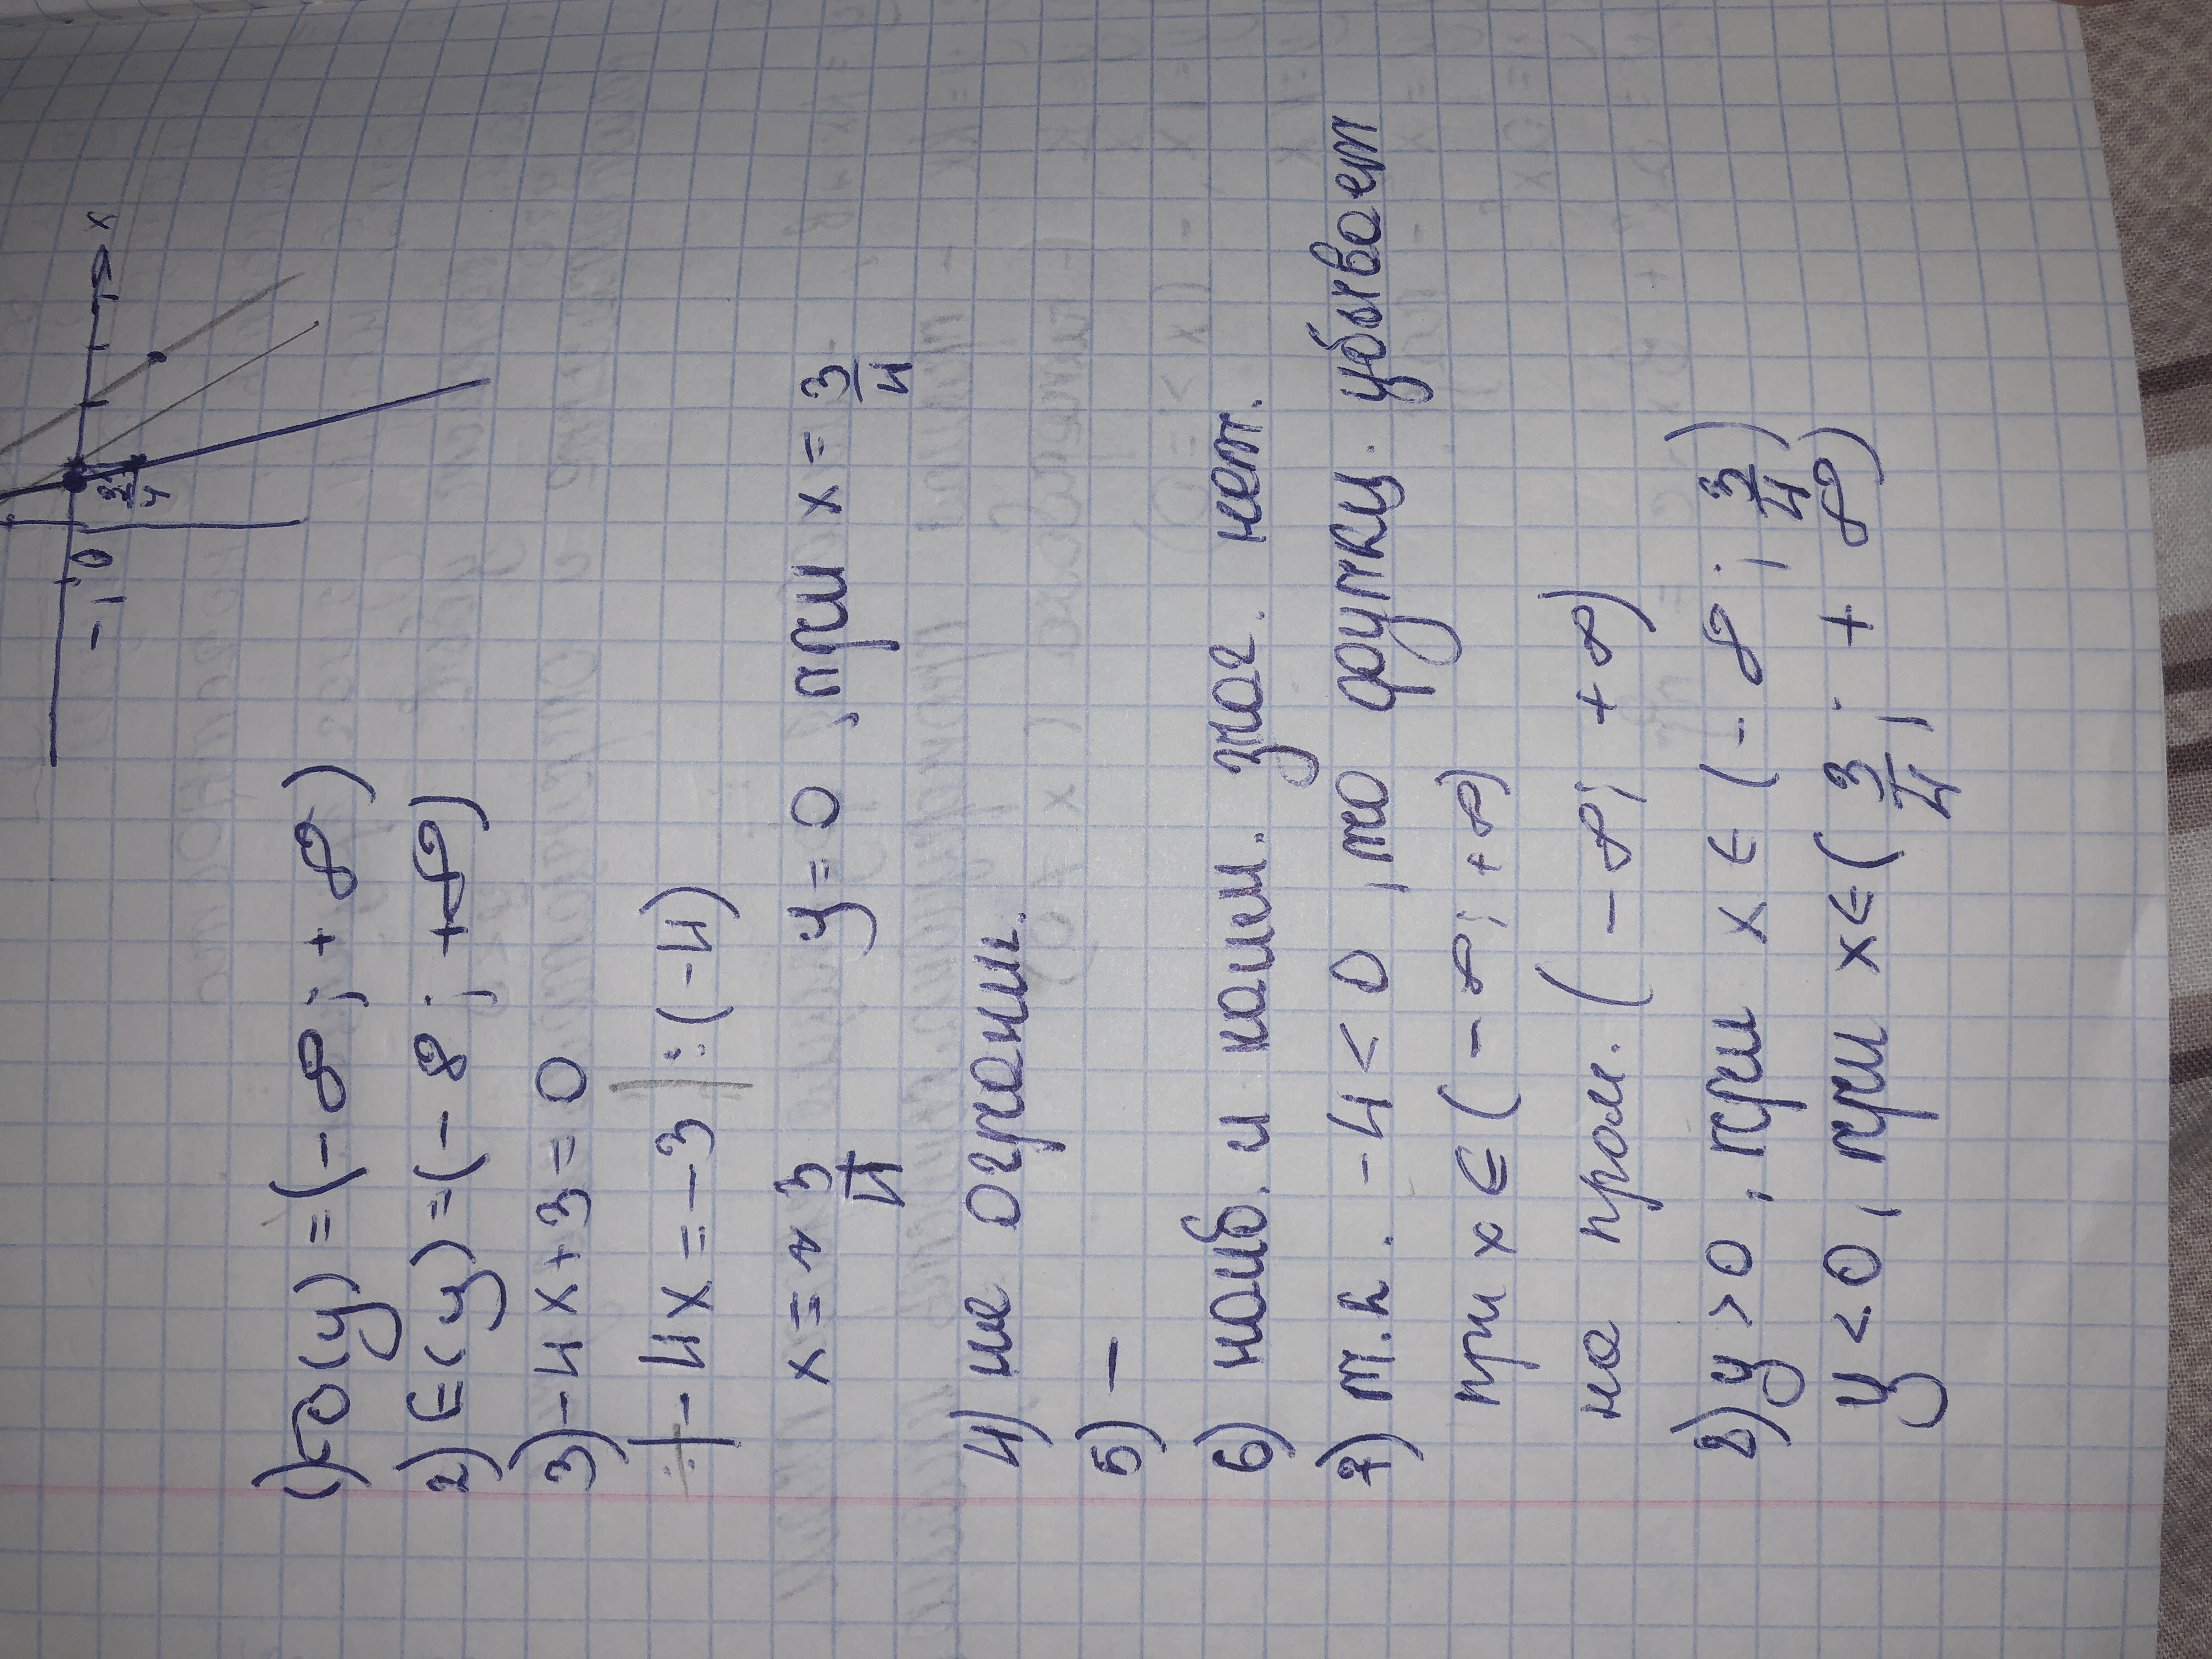 x
-1 0 3/4
1) D(y) = (-∞ ; + ∞)
2) E(y) = (- ∞ ; +∞)
3) -4x+3=0
-4x = -3 |:(-4)
x = 3/4 y=0 ,при x = 3/4
4) не огранич.
5) —
6) наиб. и наим. знач. нет.
7) т.к. -4<0 ,то функц. убывает
при x ∈ (-∞; +∞)
на пром. (-∞; +∞)
8) y>0 , при x ∈ (-∞ ; 3/4)
y<0, при x∈(3/4; + ∞)